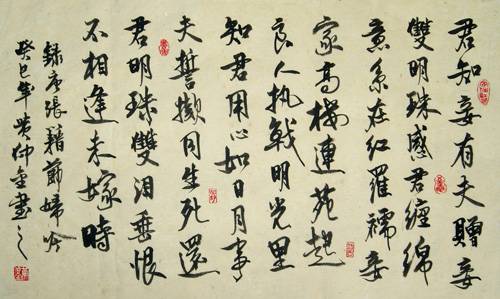 君知妾有夫贈妾
雙明珠感君纏綿
意系在紅羅襦妾
家高樓連苑起
良人執戟明光里
知君用心如日月事
夫誓擬同生死還
君明珠雙泪垂恨
不相逢未嫁時
錄唐張籍節婦吟
癸巳年黄仲金書之